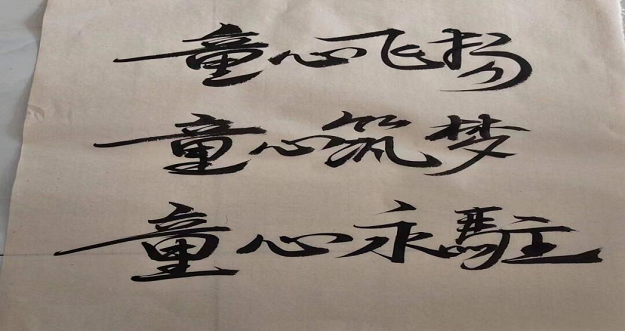 童心飞扬
童心筑梦
童心永駐